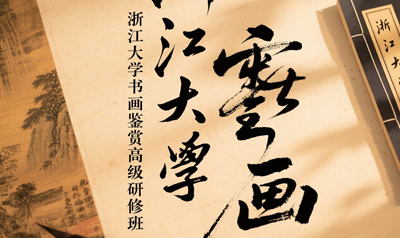 江大學
画
浙江大学书画鉴赏高级研修班
浙江大